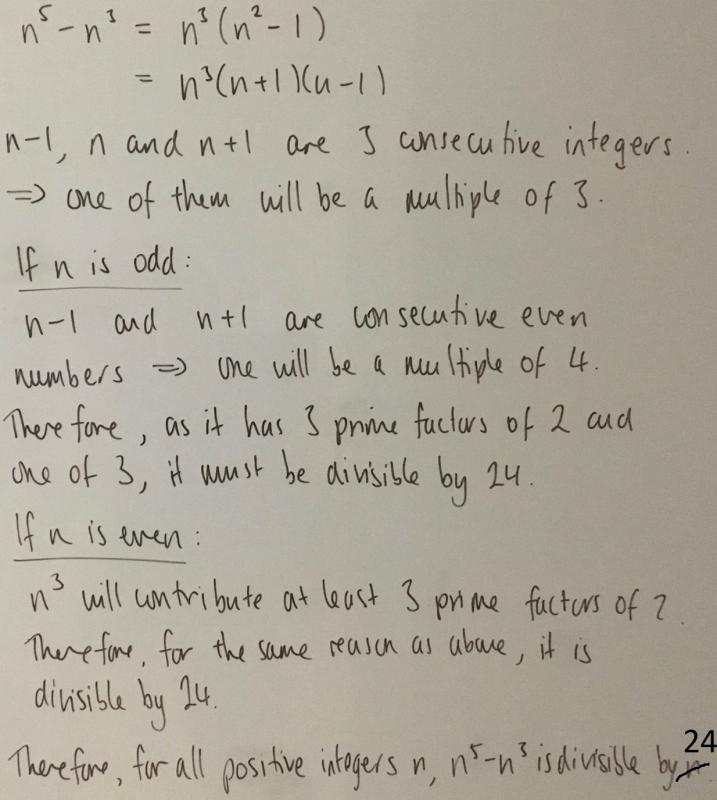 n⁵ - n³ = n³(n² - 1)
= n³(n+1)(n-1)
n-1, n and n+1 are 3 consecutive integers.
⇒ one of them will be a multiple of 3.
If n is odd:
n-1 and n+1 are consecutive even
numbers ⇒ one will be a multiple of 4.
Therefore, as it has 3 prime factors of 2 and
one of 3, it must be divisible by 24.
If n is even:
n³ will contribute at least 3 prime factors of 2.
Therefore, for the same reason as above, it is
divisible by 24.
Therefore, for all positive integers n, n⁵-n³ is divisible by 24